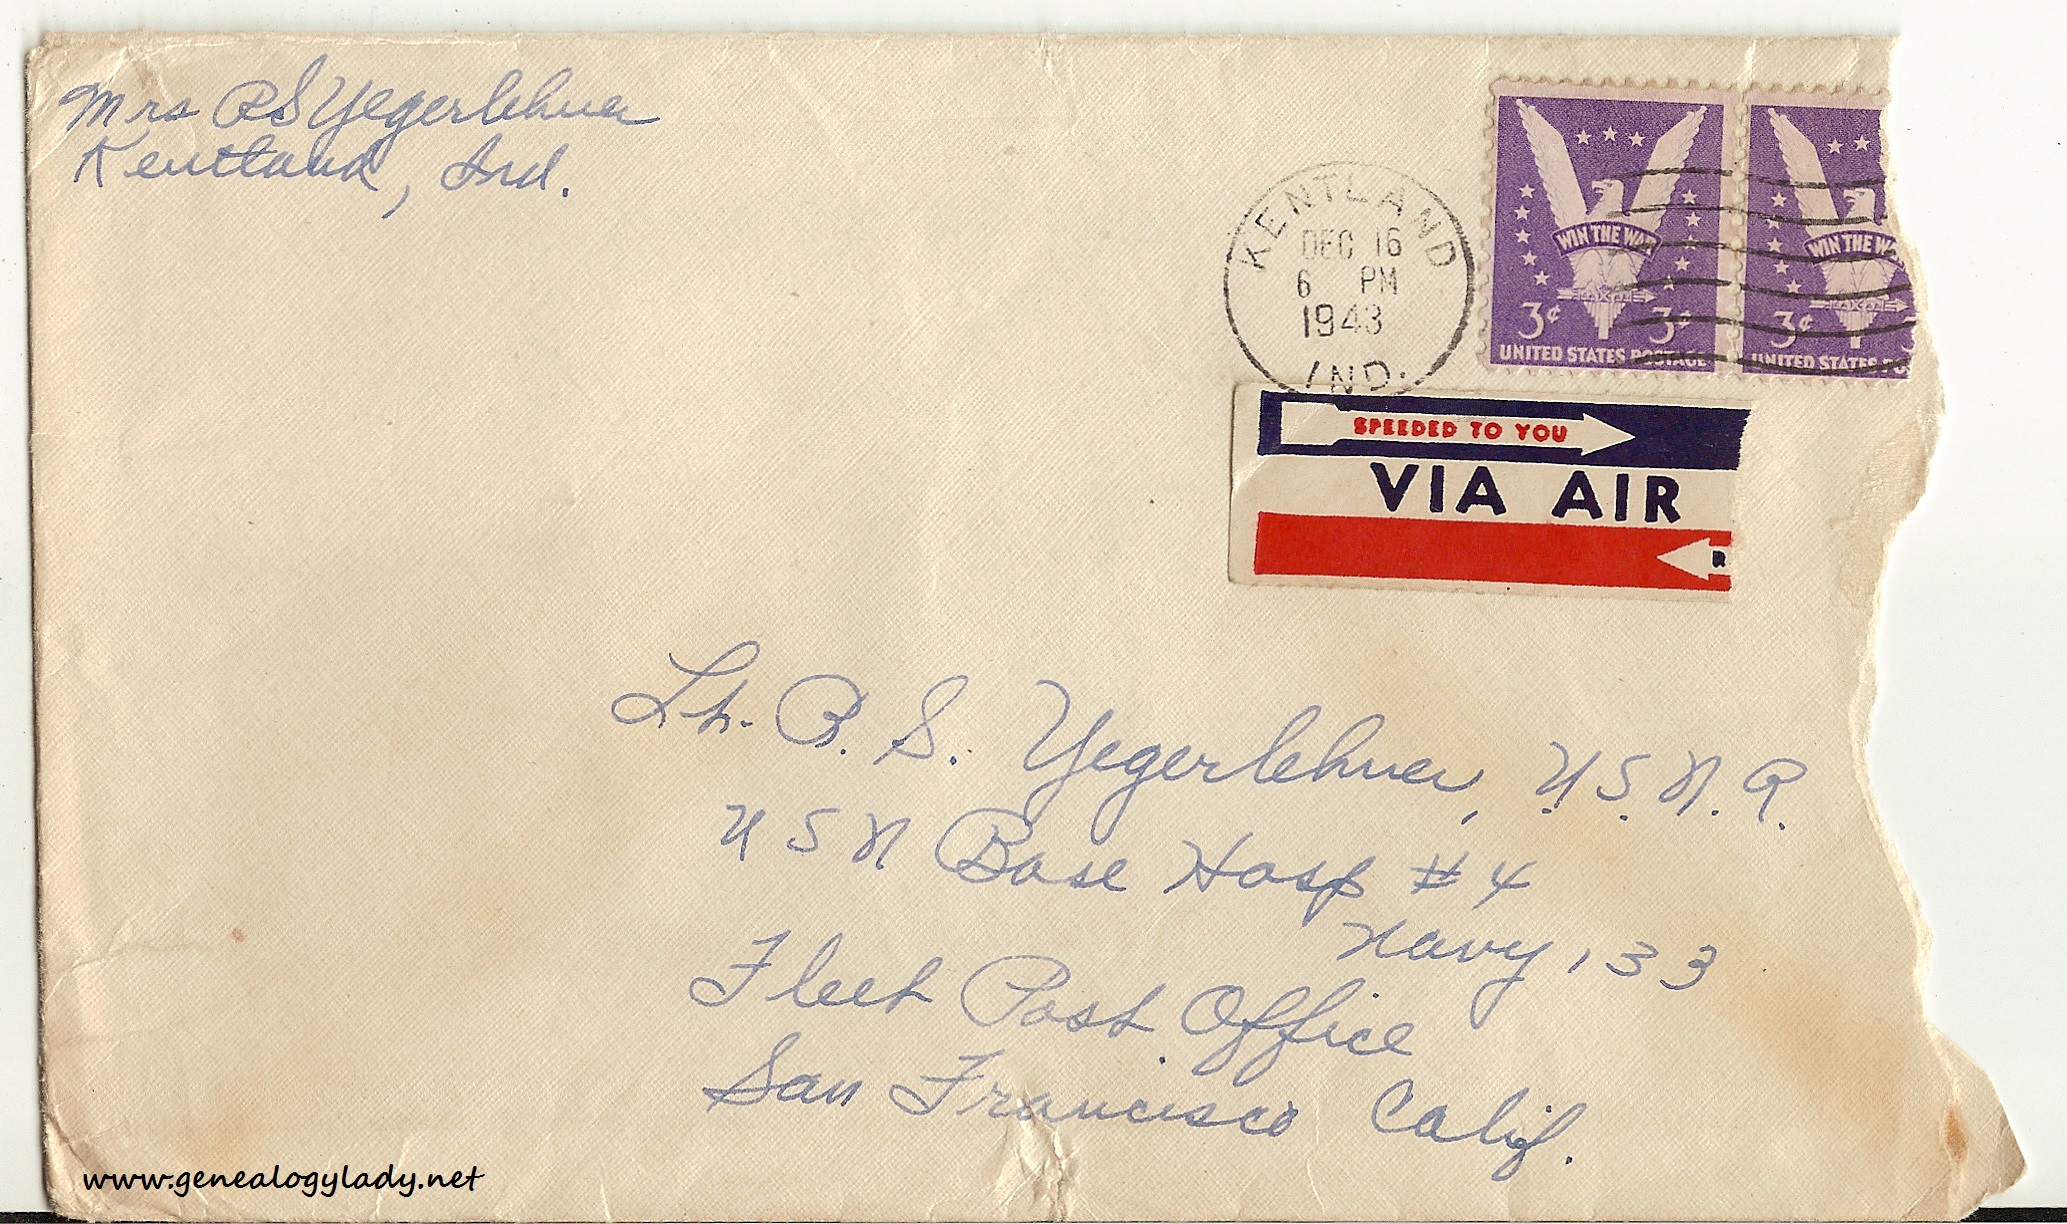 Mrs RS Yegerlehner
Kentland, Ind.
KENTLAND
DEC 16
6 PM
1943
IND.
WIN THE WAR
3¢ 3¢
UNITED STATES POSTAGE
WIN THE WA
3¢ 3
UNITED STATES PO
SPEEDED TO YOU
VIA AIR
R
Lt. R. S. Yegerlehner, U.S.N.R.
U S N Base Hosp #4
Navy, 133
Fleet Post Office
San Francisco Calif.
www.genealogylady.net